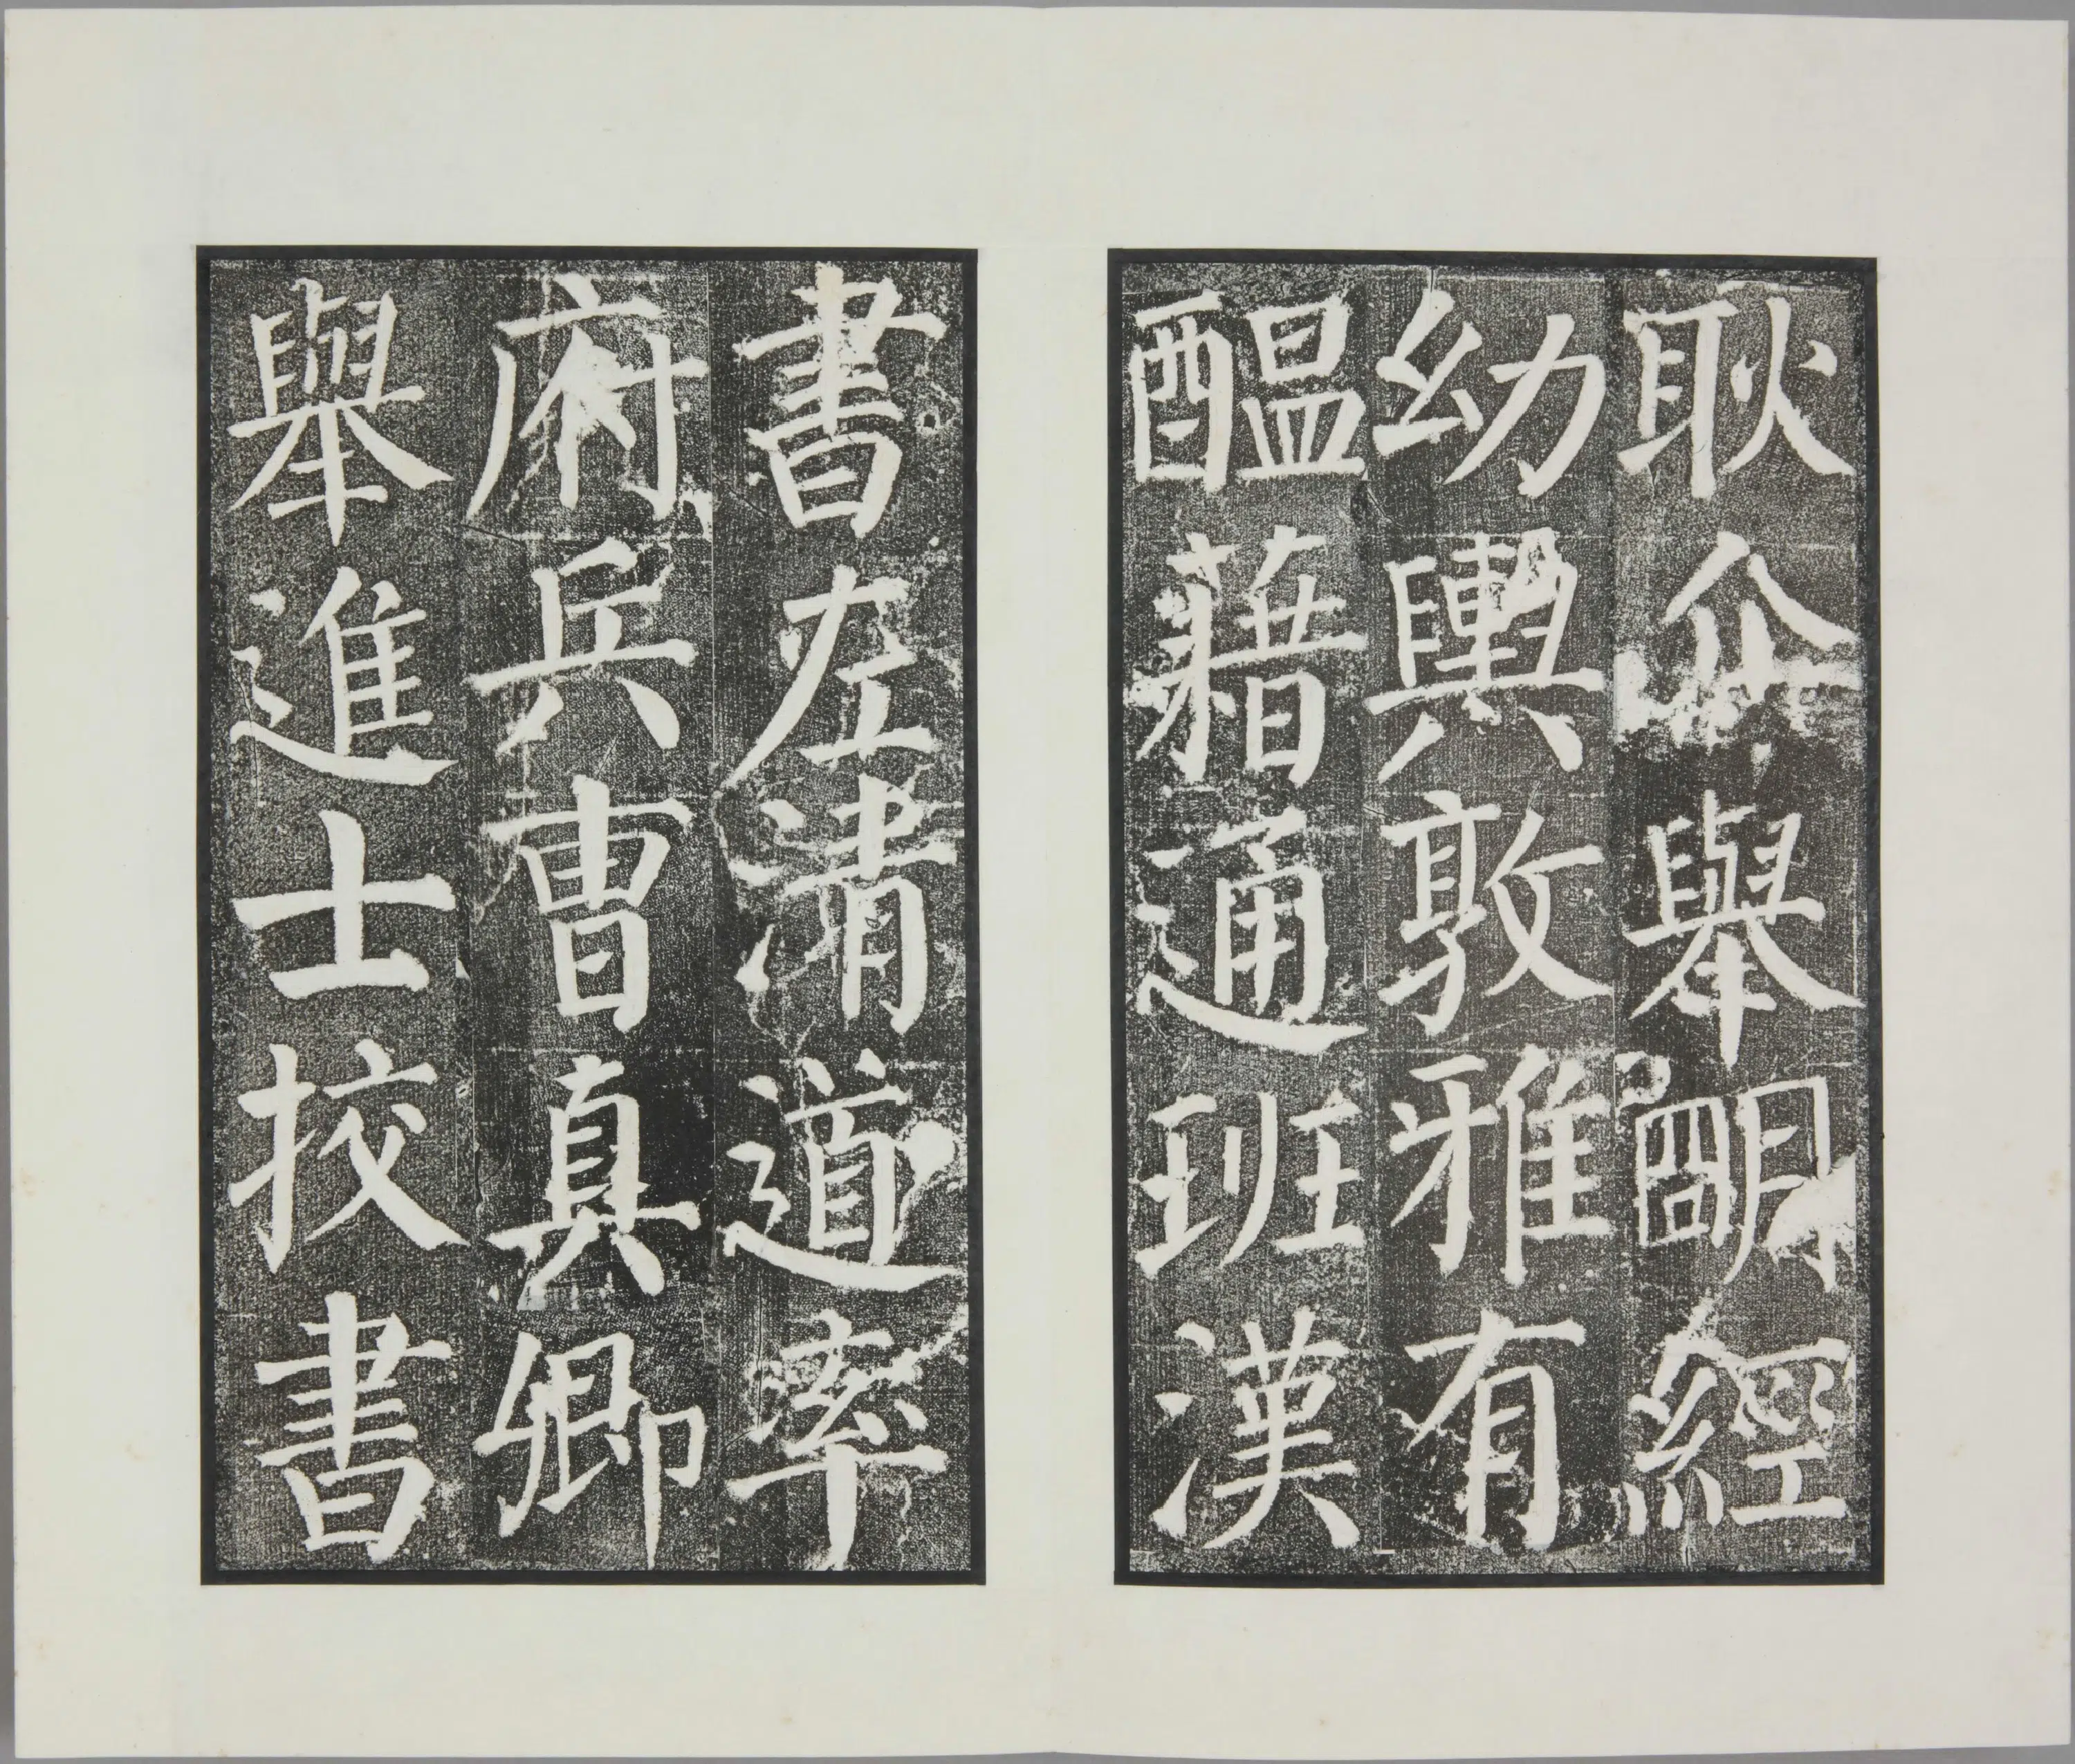 耿介舉明經
幼輿敦雅有
醖藉通班漢
書左清道率
府兵曹真卿
舉進士挍書